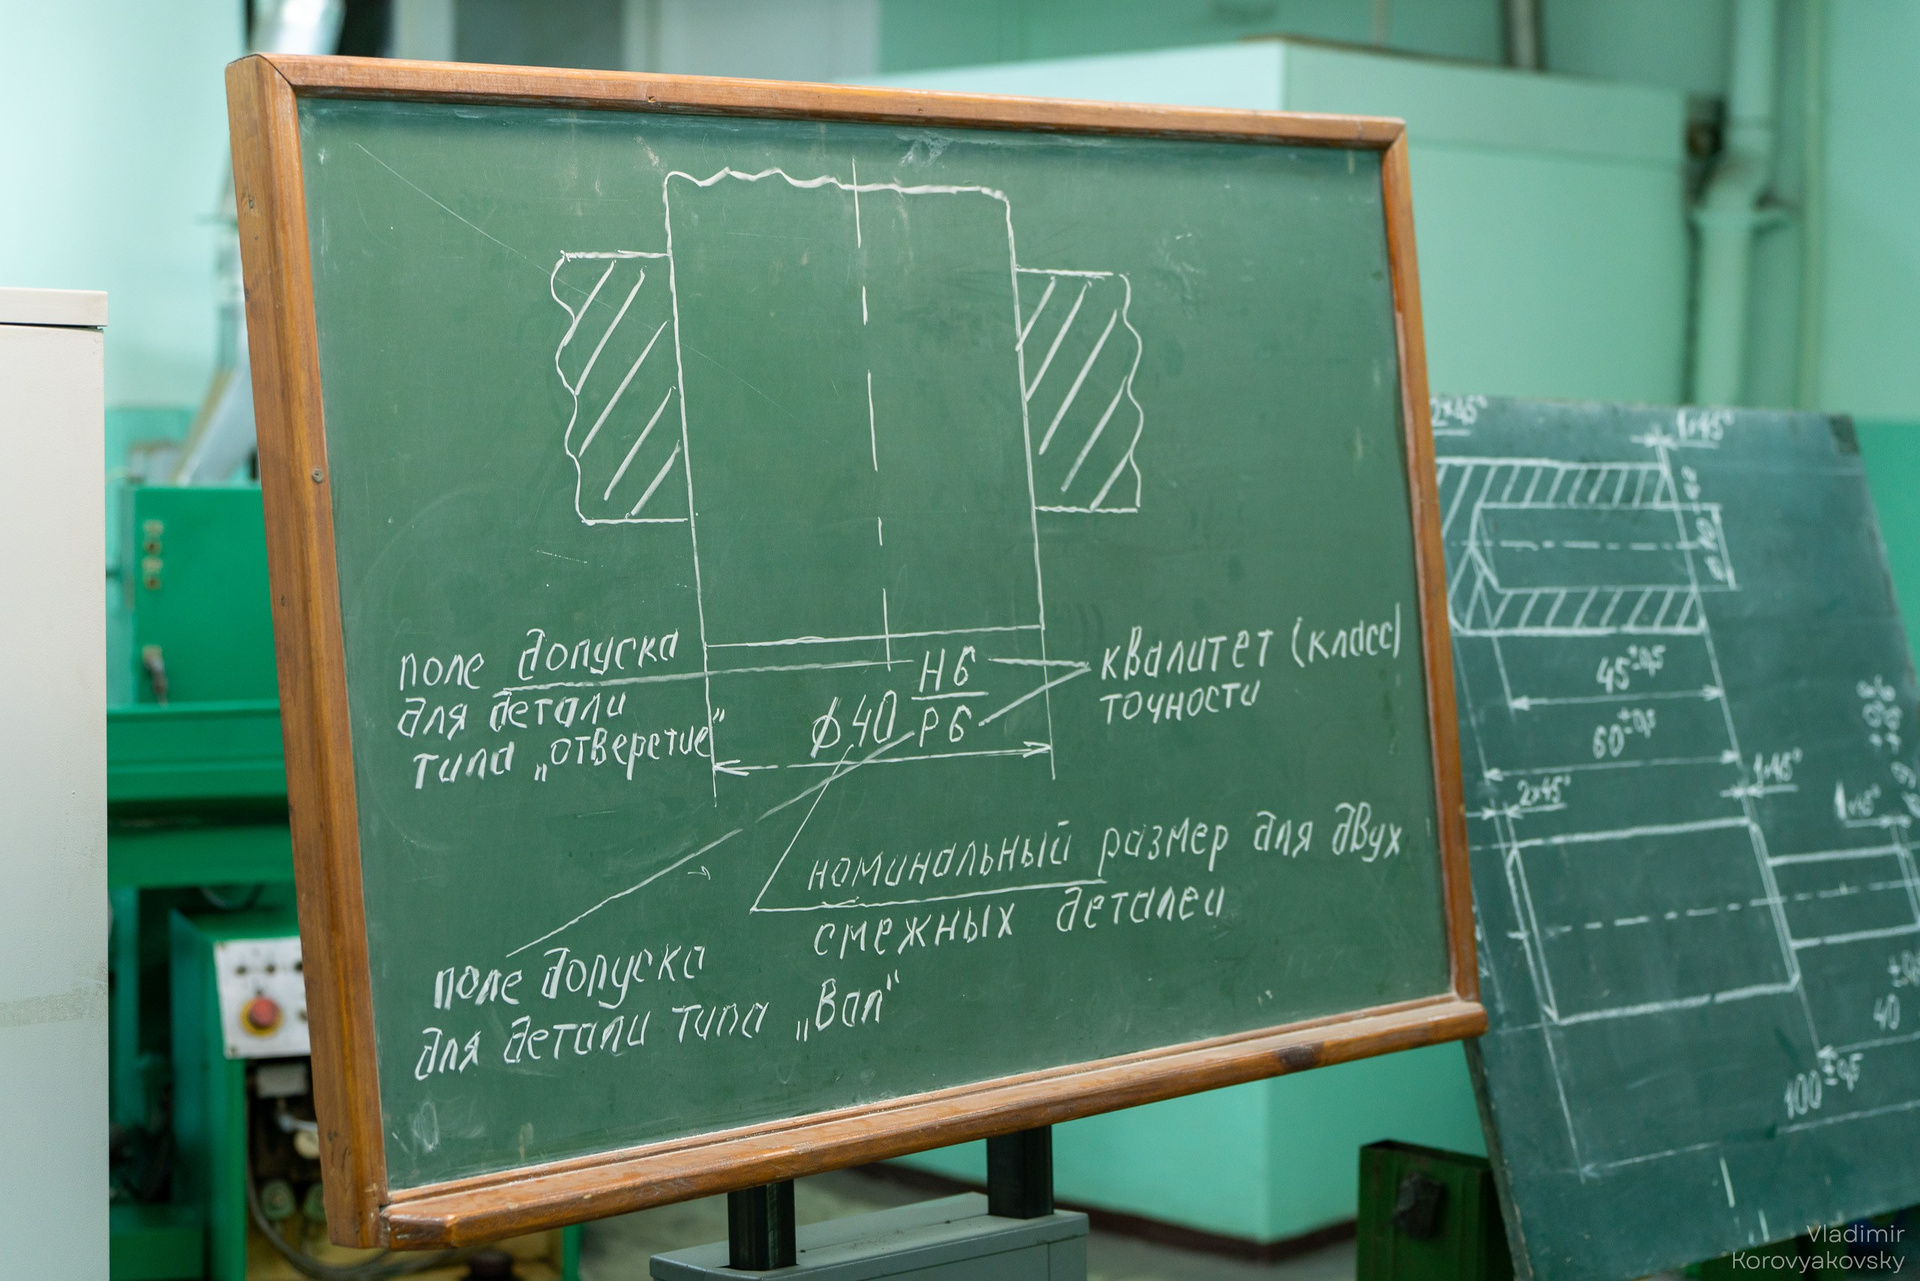 поле допуска
для детали
типа „отверстие“
ϕ40 H6
P6
квалитет (класс)
точности
номинальный размер для двух
смежных деталей
поле допуска
для детали типа „Вал“
2×45°
1×45°
45±0,5
60±0,5
2×45°
1×45°
1×45°
40
100±0,5
Vladimir
Korovyakovsky